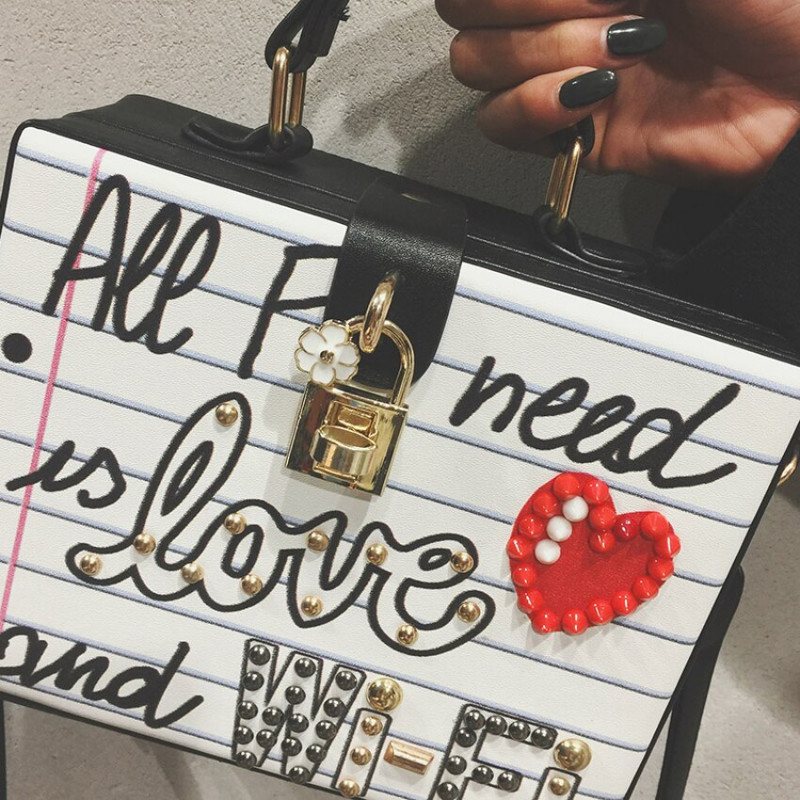 All I need
is love
and Wi-Fi